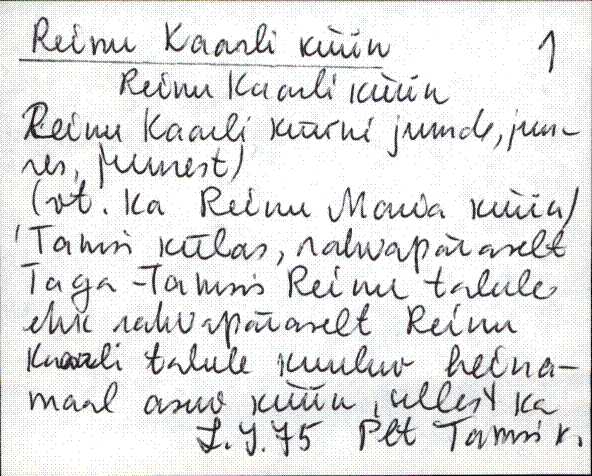 Reinu Kaarli küün 1
Reinu Kaarli küün
Reinu Kaarli küüni juurde, juu-
res, juurest)
(vt. ka Reinu Maria küün)
Tamsi külas, rahvapäraselt
Taga-Tamsis Reinu talule
ehk rahvapäraselt Reinu
Kaarli talule kuuluv heina-
maal asuv küün, sellest ka
Plt Tamsi k.